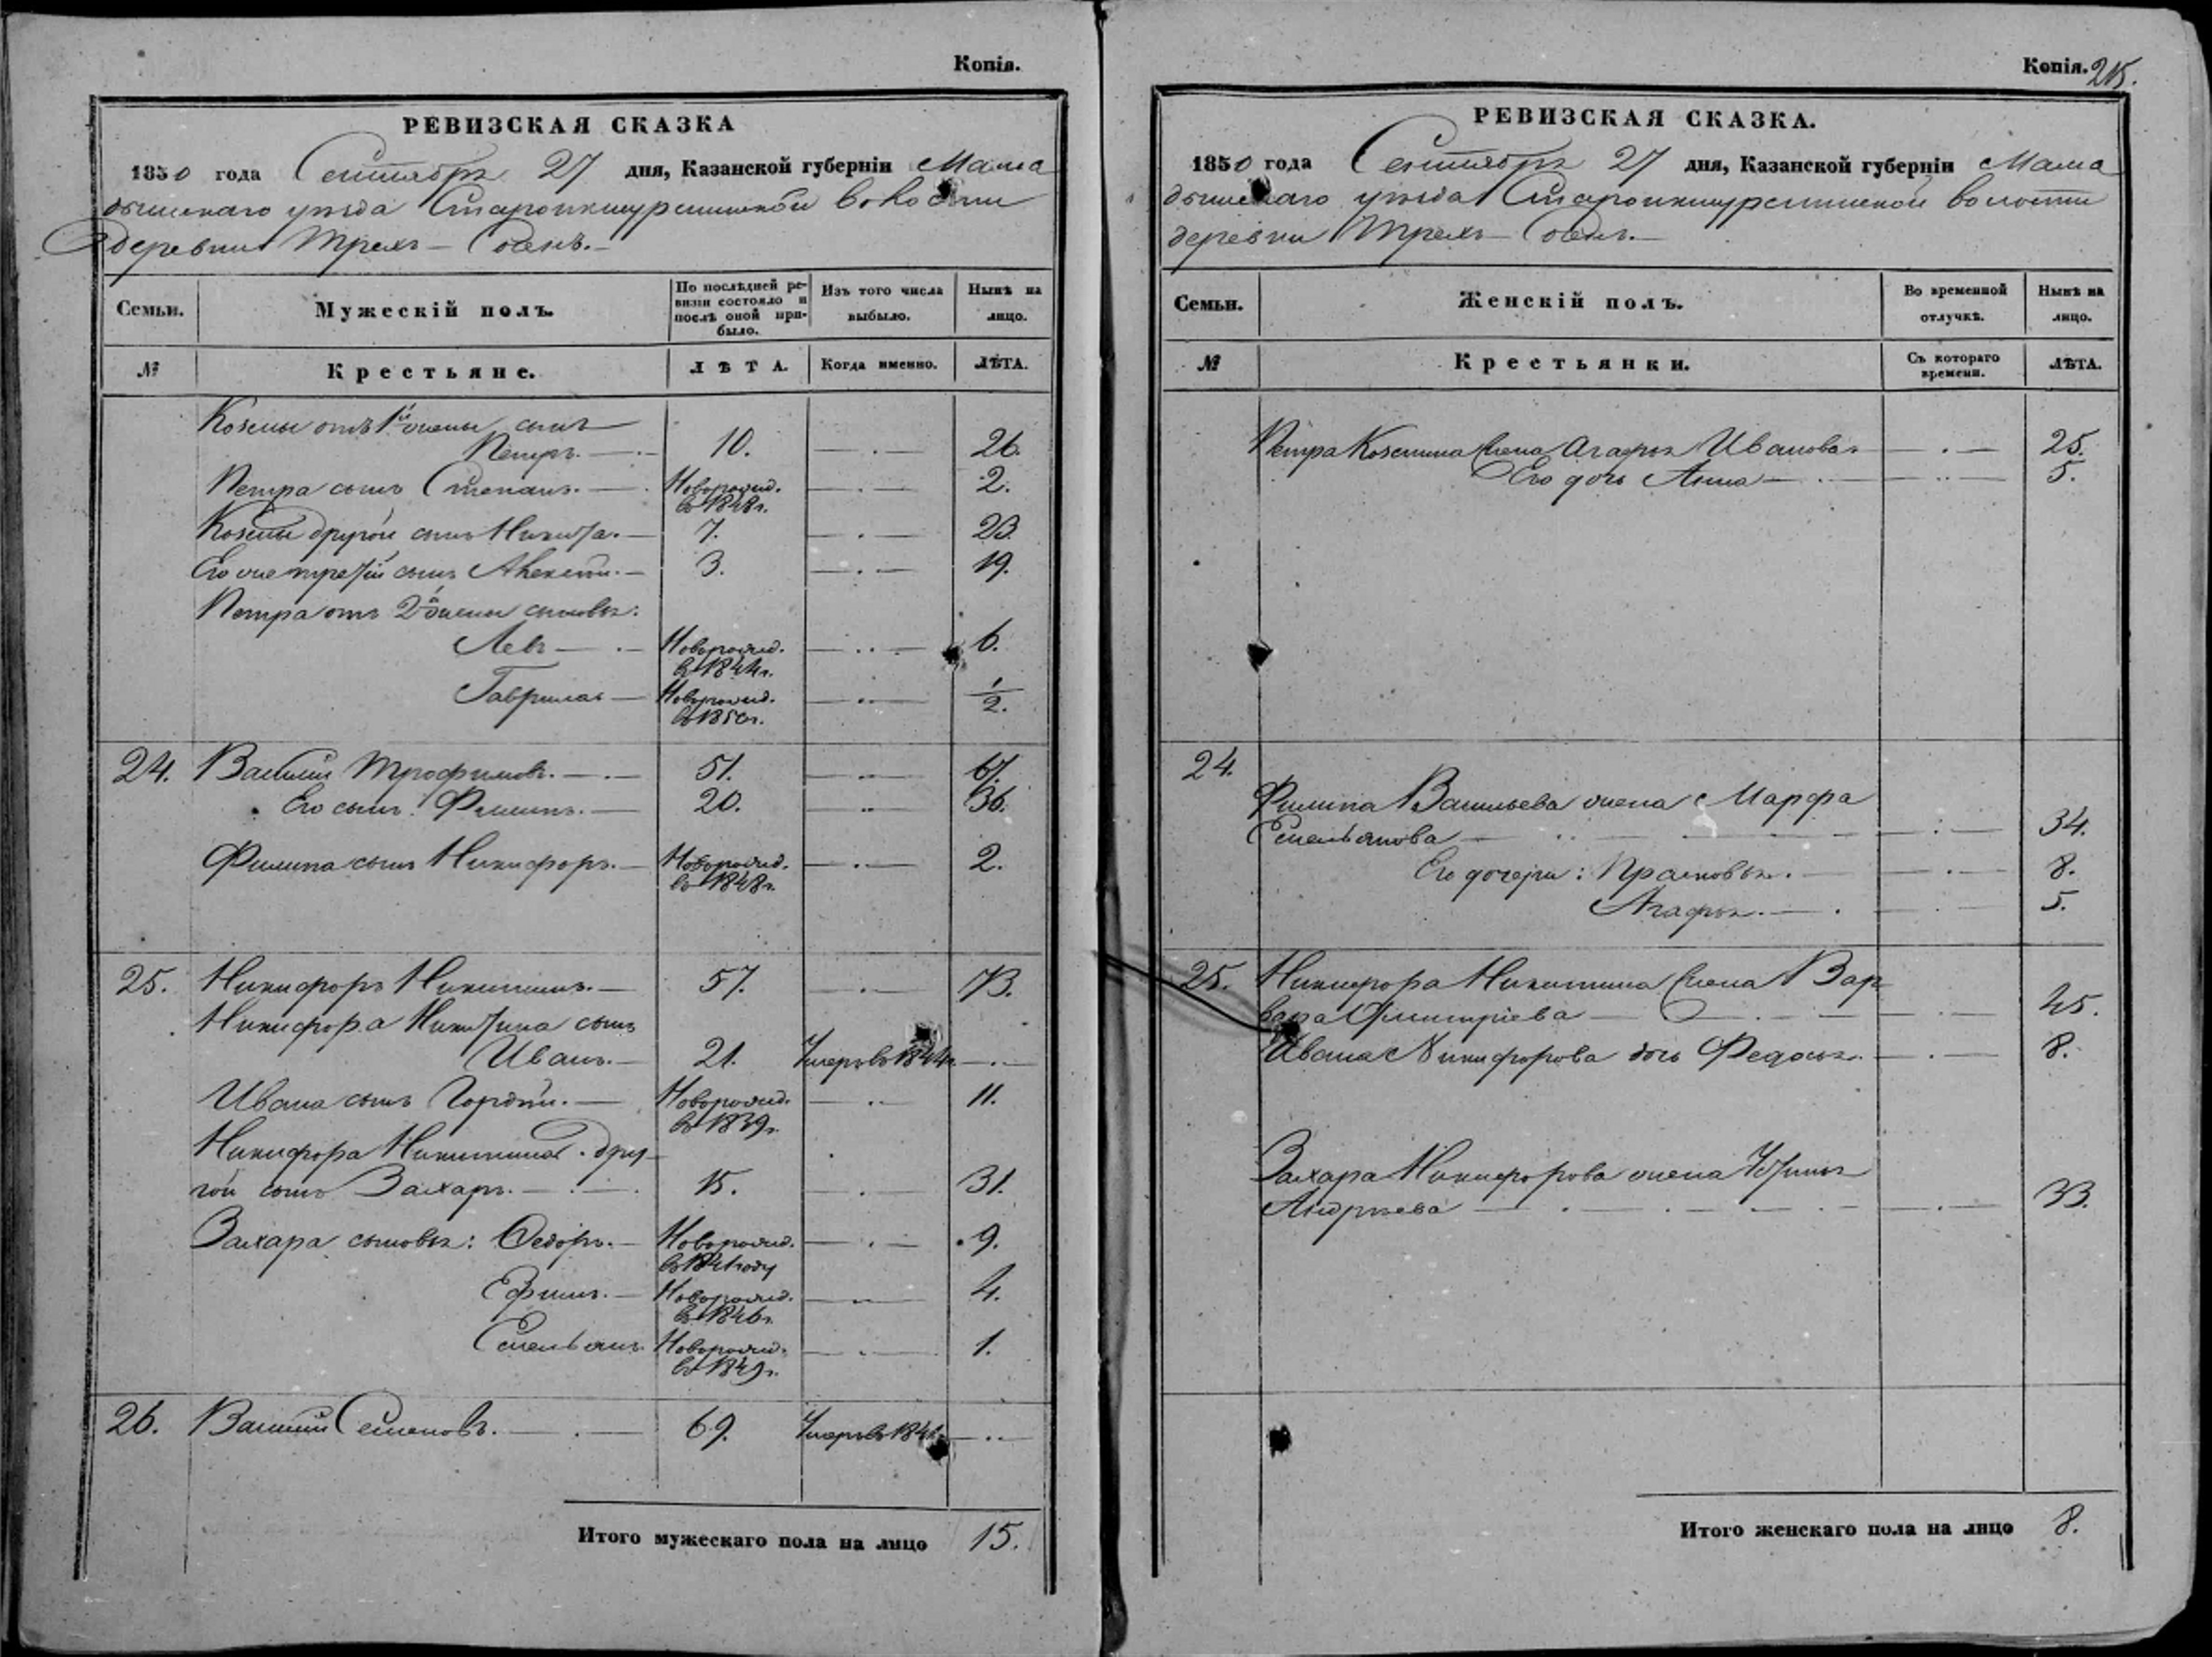 Копія.
РЕВИЗСКАЯ СКАЗКА
1850 года Сентября 27 дня, Казанской губерніи Мама
дышскаго уѣзда Староикшурминской волости
деревни Трехъ-Соенъ.
Семьи. Мужескій полъ. По послѣдней ревизіи состояло и послѣ оной прибыло. Изъ того числа выбыло. Нынѣ на лицо.
№ Крестьяне. ЛѢТА. Когда именно. ЛѢТА.
Козмы отъ 1й жены сынъ
Петръ. 10. 26.
Петра сынъ Степанъ. Новорожд. въ 1848 г. 2.
Козмы другой сынъ Никита. 7. 23.
Его же третій сынъ Алексѣй. 3. 19.
Петра отъ 2й жены сыновья:
Левъ Новорожд. въ 1844 г. 6.
Гаврила Новорожд. въ 1850 г. 1/2.
24. Василій Трофимовъ. 51. 67.
Его сынъ Филипъ. 20. 36.
Филипа сынъ Никифоръ. Новорожд. въ 1848 г. 2.
25. Никифоръ Никитинъ. 57. 73.
Никифора Никитина сынъ
Иванъ. 21. Умеръ въ 1844 г.
Ивана сынъ Гордѣй. Новорожд. въ 1839 г. 11.
Никифора Никитина дру-
гой сынъ Захаръ. 15. 31.
Захара сыновья: Ѳедоръ. Новорожд. въ 1841 году 9.
Ефимъ. Новорожд. въ 1846 г. 4.
Емельянъ Новорожд. въ 1849 г. 1.
26. Василій Семеновъ. 69. Умеръ въ 184
Итого мужескаго пола на лицо 15.
Копія. 215.
РЕВИЗСКАЯ СКАЗКА.
1850 года Сентября 27 дня, Казанской губерніи Мама
дышскаго уѣзда Староикшурминской волости
деревни Трехъ-Соенъ.
Семьи. Женскій полъ. Во временной отлучкѣ. Нынѣ на лицо.
№ Крестьянки. Съ котораго времени. ЛѢТА.
Петра Козмина жена Агафья Иванова 25.
Его дочь Анна 5.
24.
Филипа Васильева жена Марфа
Емельянова 34.
Его дочери: Прасковья. 8.
Агафья. 5.
25. Никифора Никитина жена Вар
вара Дмитріева 45.
Ивана Никифорова дочь Федосья. 8.
Захара Никифорова жена Устинья
Андреева 33.
Итого женскаго пола на лицо 8.